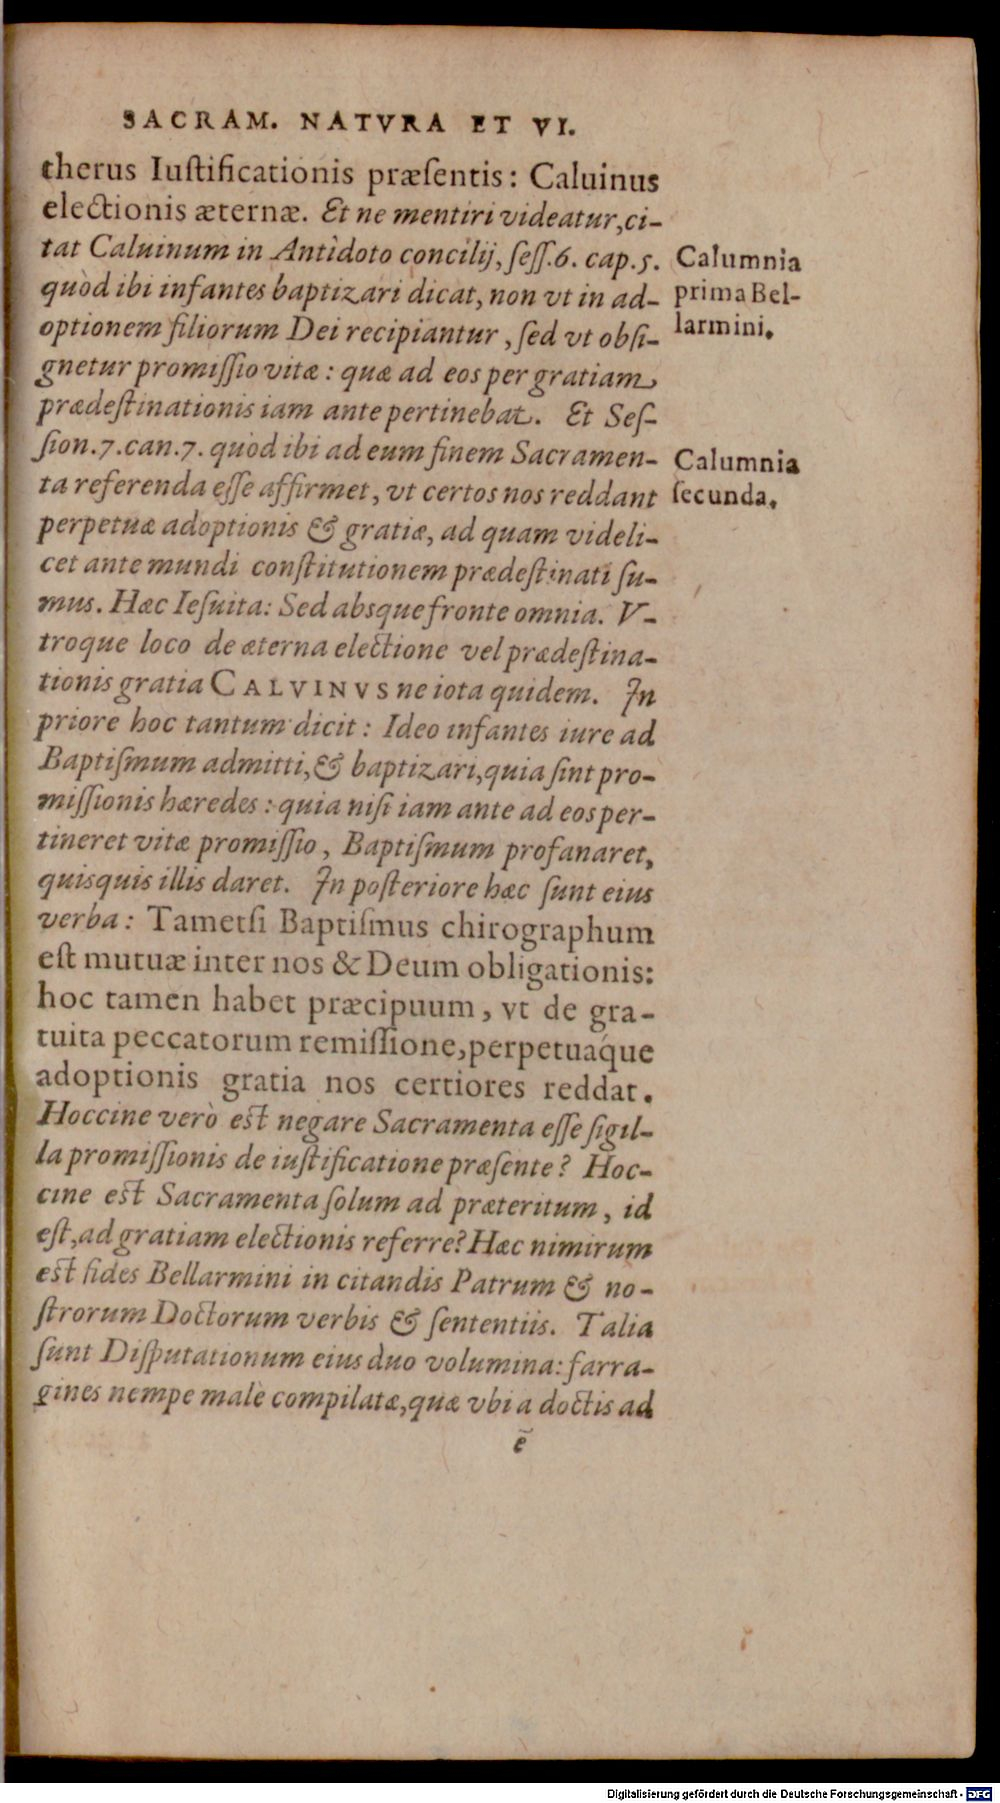 SACRAM. NATVRA ET VI.
therus Iuſtificationis præſentis: Caluinus
electionis æternæ. Et ne mentiri videatur, ci-
tat Caluinum in Antìdoto concilij, ſeſſ. 6. cap. 5.
quòd ibi infantes baptizari dicat, non vt in ad-
optionem filiorum Dei recipiantur, ſed vt obſi-
gnetur promiſſio vitæ: quæ ad eos per gratiam
prædeſtinationis iam ante pertinebat. Et Seſ-
ſion. 7. can. 7. quòd ibi ad eum finem Sacramen-
ta referenda eſſe affirmet, vt certos nos reddant
perpetuæ adoptionis & gratiæ, ad quam videli-
cet ante mundi conſtitutionem prædeſtinati ſu-
mus. Hæc Ieſuita: Sed absque fronte omnia. V-
troque loco de æterna electione vel prædeſtina-
tionis gratia CALVINVS ne iota quidem. In
priore hoc tantum dicit: Ideo infantes iure ad
Baptiſmum admitti, & baptizari, quia ſint pro-
miſſionis hæredes: quia niſi iam ante ad eos per-
tineret vitæ promiſſio, Baptiſmum profanaret,
quisquis illis daret. In poſteriore hæc ſunt eius
verba: Tametſi Baptiſmus chirographum
eſt mutuæ inter nos & Deum obligationis:
hoc tamen habet præcipuum, vt de gra-
tuita peccatorum remiſſione, perpetuáque
adoptionis gratia nos certiores reddat.
Hoccine verò eſt negare Sacramenta eſſe ſigil-
la promiſſionis de iuſtificatione præſente? Hoc-
cine eſt Sacramenta ſolum ad præteritum, id
eſt, ad gratiam electionis referre? Hæc nimirum
eſt fides Bellarmini in citandis Patrum & no-
ſtrorum Doctorum verbis & ſententiis. Talia
ſunt Diſputationum eius duo volumina: farra-
gines nempe malè compilatæ, quæ vbi a doctis ad
ē
Calumnia
prima Bel-
larmini.
Calumnia
ſecunda.
Digitalisierung gefördert durch die Deutsche Forschungsgemeinschaft - DFG